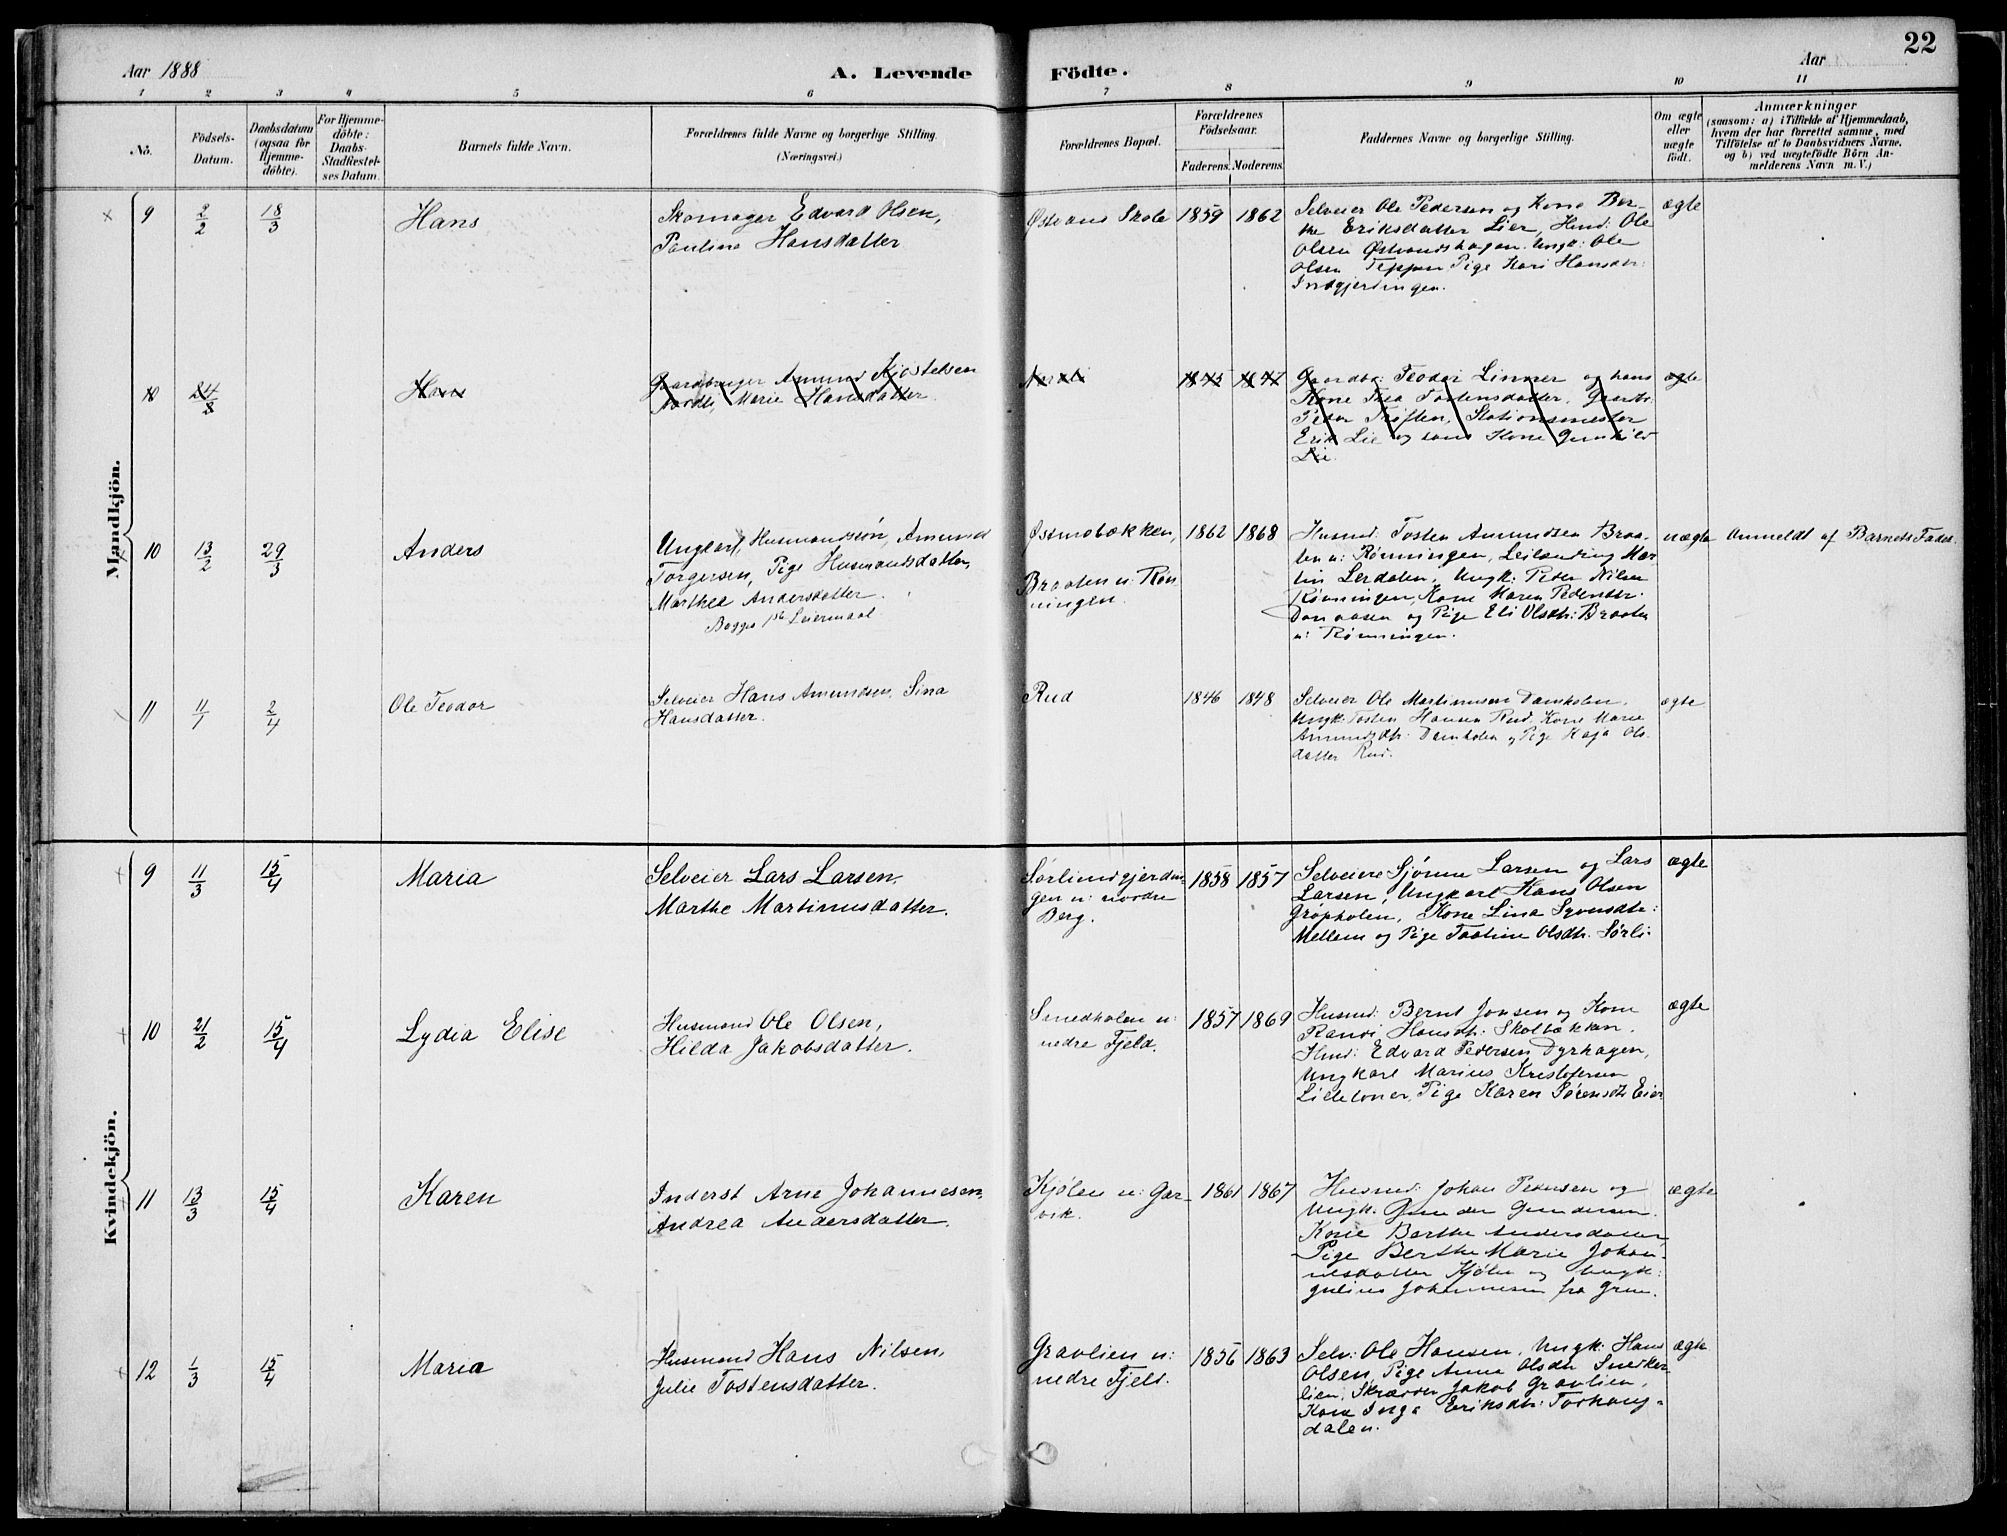 22
Aar 1888
A. Levende
Födte.
Aar
1 2 3 4 5 6 7 8 9 10 11
No.
Födsels-
Datum.
Daabsdatum
(ogsaa for
Hjemme-
döbte).
For Hjemme-
döbte:
Daabs-
Stadfæstel-
ses Datum.
Barnets fulde Navn.
Forældrenes fulde Navne og borgerlige Stilling.
(Næringsvei.)
Forældrenes Bopæl.
Forældrenes
Födselsaar.
Faderens. Moderens.
Faddernes Navne og borgerlige Stilling.
Om ægte
eller
uægte
födt.
Anmærkninger
(saasom: a) i Tilfælde af Hjemmedaab,
hvem der har forrettet samme, med
Tilföielse af to Daabsvidners Navne,
og b) ved uægtefödte Börn An-
melderens Navn m. V.)
Mandkjön.
9 2/2 18/3
Hans
Skomager Edvard Olsen,
Pauline Hansdatter
Østvans Skole
1859 1862
Selveier Ole Pedersen og Kone Ber-
the Eriksdatter Lier, Husd: Ole
Olsen Østvandshagen. Ungk: Ole
Olsen Teppen Pige Kari Hansdtr:
Indgjerdingen.
ægte
10 24/8
Hans
Gaardbruger Amund Kjøstelsen
Nordli, Marie Hansdatter
Nordli
1845
Gaardbr: Teodor Linner og hans
Kone Thea Tostensdatter. Gaardbr:
Peder Triften, Stationsmester
Erik Lie og hans Kone Gunhild
Lie.
ægte
10 13/2 29/3
Anders
Ungkarl, Husmandssøn, Amund
Torgersen, Pige Husmandsdatter,
Marthea Andersdatter.
Begges 1ste Leiermaal
Østmobækken,
Braaten u: Røn
ningen.
1862 1868
Husmd: Tosten Amundsen Braa-
ten u: Rønningen, Leilending Mar
tin Lerdalen, Ungk: Peder Nilsen
Rønningen, Kone Maren Pedersdtr.
og Pige Eli Olsdtr: Braaten
u: Rønningen.
uægte
Anmeldt af Barnets Fader.
11 11/1 2/4
Ole Teodor
Selveier Hans Amundsen, Sina
Hansdatter.
Rud
1846 1848
Selveier Ole Martinusen Damholen.
Ungk: Tosten Hansen Rud. Kone Marie
Amundsdtr: Damholen og Pige Kaja Ols
datter Rud.
ægte
Kvindekjön.
9 11/3 15/4
Maria
Selveier Lars Larsen.
Marthe Martinusdatter.
Sørliindgjerdin-
gen u: nordre
Berg.
1858 1857
Selveiere Sjønne Larsen og Lars
Larsen, Ungkarl Hans Olsen
Gropholen, Kone Lina Syvensdtr:
Mellem og Pige Olsdtr. Sørli.
ægte
10 21/2 15/4
Lydia Elise
Husmand Ole Olsen,
Hilda Jakobsdatter.
Smedholen u:
nedre Fjeld.
1857 1869
Husmd: Bernt Jonsen og Kone
Randi Hansdtr: Skolbækken.
Husd: Edvard Pedersen Dyrhagen,
Ungkarl Marius Kristofersen
Pige Karen Sørensdtr Eier
ægte
11 13/3 15/4
Karen
Inderst Arne Johannesen,
Andrea Andersdatter.
Kjølen u: Gar-
vik.
1861 1867
Husmd: Johan Pedersen og
Ungk. Gunder Gundersen.
Kone Berthe Andersdatter
Pige Berthe Marie Johan-
nesdatter Kjølen og Ungk:
Julius Johannesen fra Grue.
ægte
12 1/3 15/4
Maria
Husmand Hans Nilsen,
Julie Tostensdatter.
Gravlien u:
nedre Fjeld.
1856 1863
Selv: Ole Hansen. Ungk: Hans
Olsen, Pige Anne Olsdtr Snedker-
lien, Skrædder Jakob Gravlien,
Kone Inga Eriksdtr:
dalen.
ægte